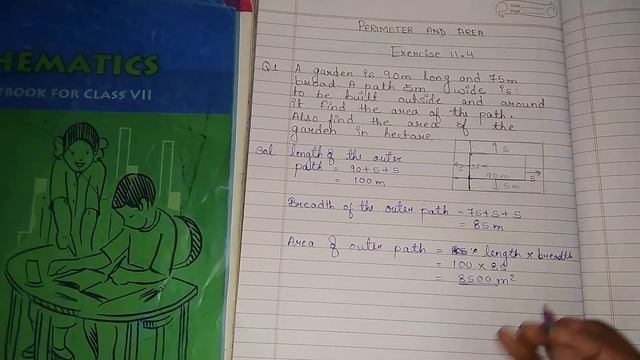 HEMATICS
TBOOK FOR CLASS VII
PERIMETER AND AREA
Exercise 11.4
Q1 A garden is 90m long and 75m
broad. A path 5m wide is
to be built outside and around
it. Find the area of the path.
Also find the area of the
garden in hectare
Sol length of the outer
path = 90+5+5
= 100m
5
5
90m
5
5m
Breadth of the outer path = 75+5+5
= 85m
Area of outer path = length × breadth
= 100 × 85
= 8500 m²